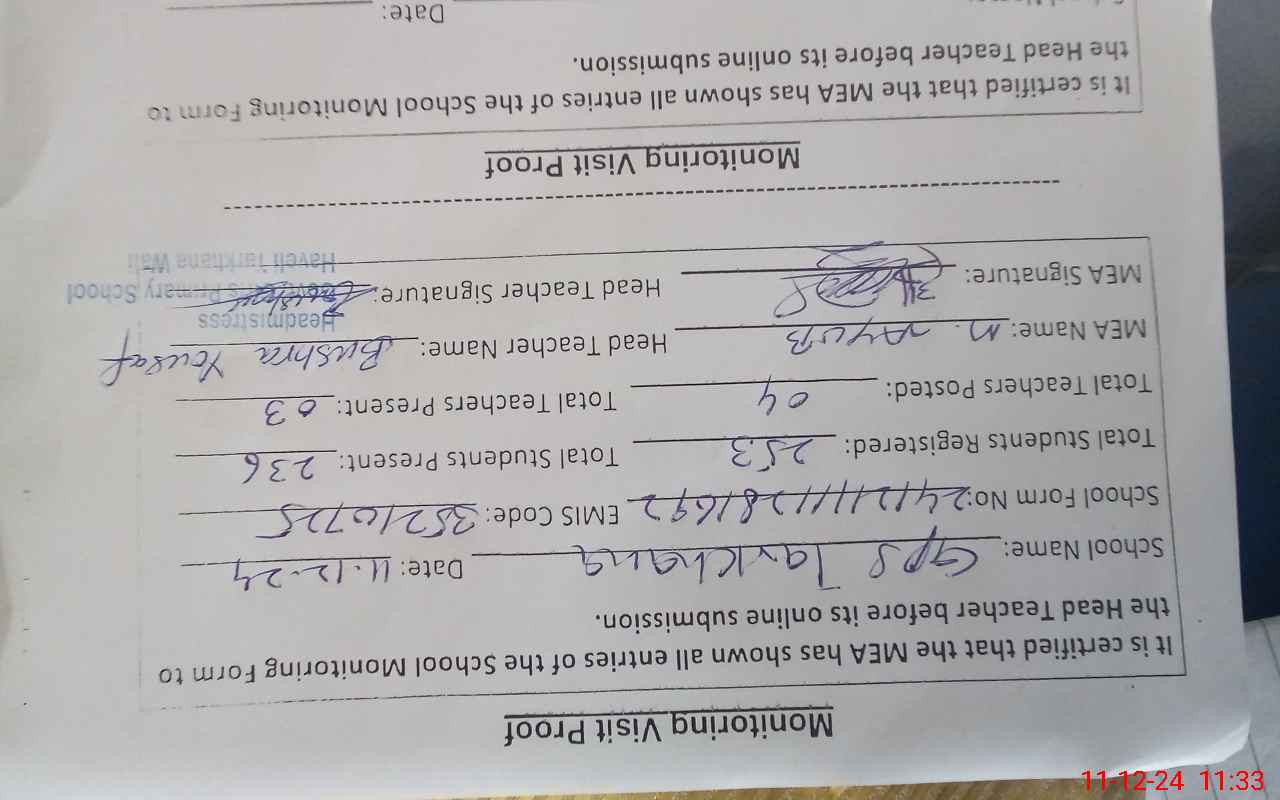 Monitoring Visit Proof
It is certified that the MEA has shown all entries of the School Monitoring Form to
the Head Teacher before its online submission.
School Name: GPS Tarkhana Date: 11.12.24
School Form No: EMIS Code: 35210725
Total Students Registered: 253 Total Students Present: 236
Total Teachers Posted: 04 Total Teachers Present: 03
MEA Name: M. AYUB Head Teacher Name: Bushra Yousaf
MEA Signature: Head Teacher Signature:
Headmistress
Primary School
Haveli Tarkhana Wali
Monitoring Visit Proof
It is certified that the MEA has shown all entries of the School Monitoring Form to
the Head Teacher before its online submission.
Date:
11-12-24 11:33